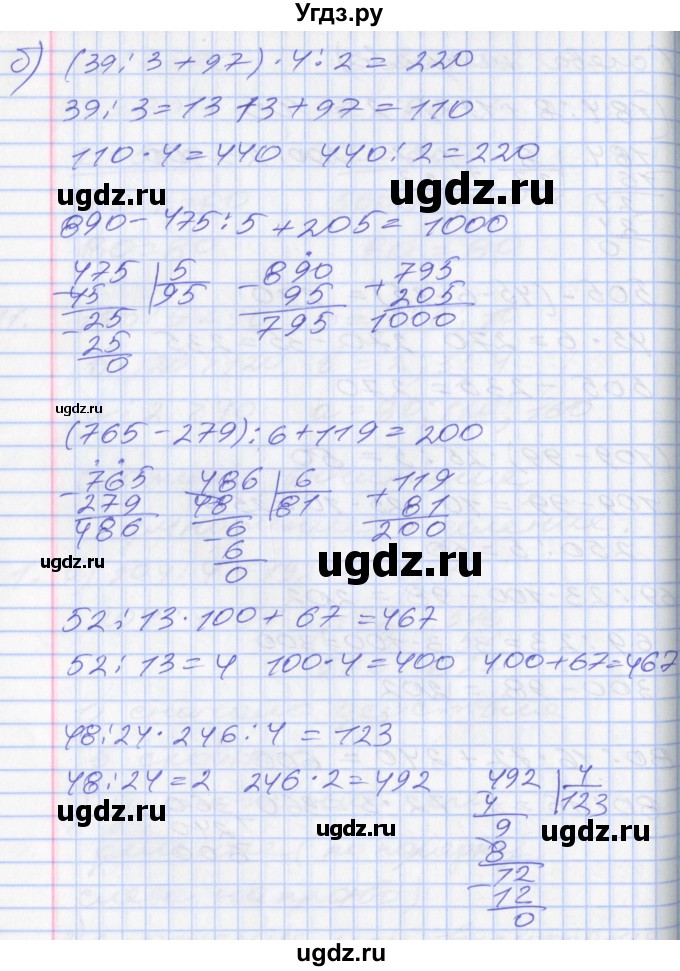 Угдз.ру
б) (39 : 3 + 97) · 4 : 2 = 220
39 : 3 = 13 13 + 97 = 110
110 · 4 = 440 440 : 2 = 220
ugdz.ru ugdz.ru
890 - 475 : 5 + 205 = 1000
475 | 5 - 890 + 795
- 45 95 95 205
- 25 795 1000
25
0
ugdz.ru
(765 - 279) : 6 + 119 = 200
- 765 486 | 6 + 119
279 48 81 81
486 - 6 200
6
0
ugdz.ru ugdz.ru
52 : 13 · 100 + 67 = 467
52 : 13 = 4 100 · 4 = 400 400 + 67 = 467
48 : 24 · 246 : 4 = 123
48 : 24 = 2 246 · 2 = 492 492 | 4
4 123
ugdz.ru ugdz.ru ugdz.ru
- 9
8
- 12
12
0
ugdz.ru
ugdz.ru